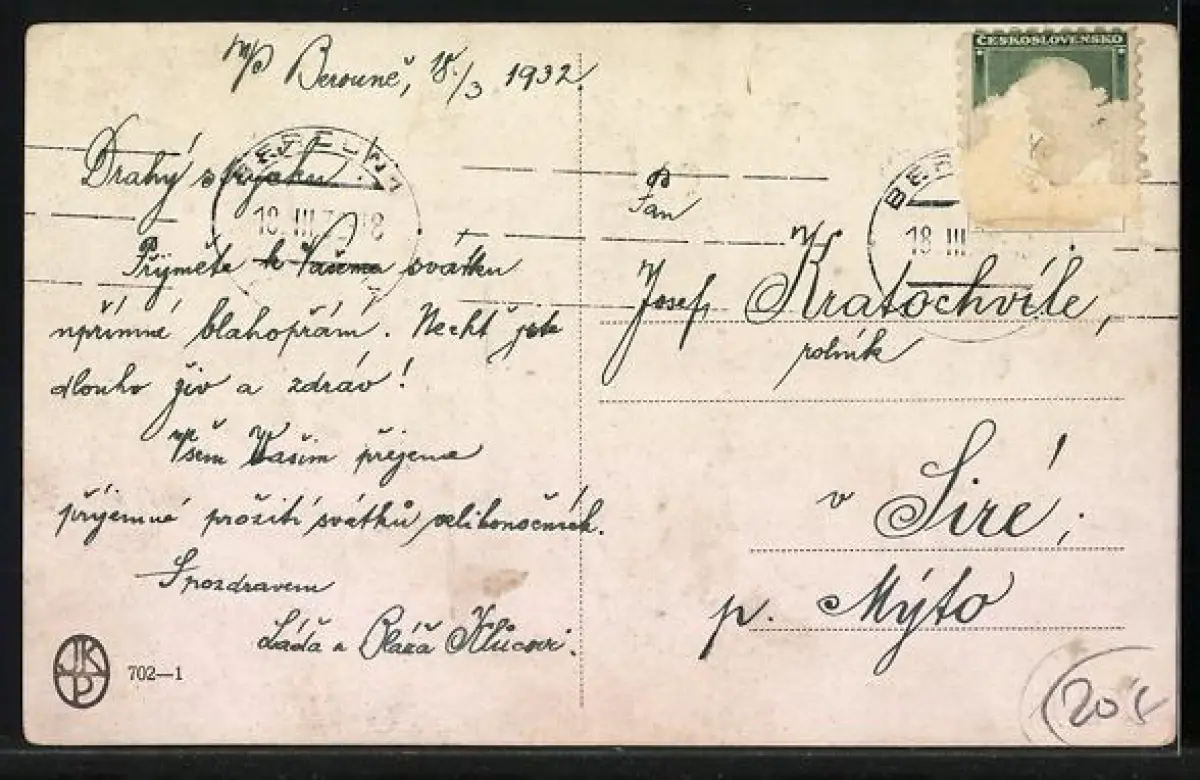 V Berouně, 18./3 1932.
Drahý strýčku.
Přijměte k Vašemu svátku
upřímné blahopřání. Nechť jste
dlouho živ a zdráv!
Všem Vašim přejeme
příjemné prožití svátků velikonočních.
S pozdravem
Láďa a Bláža
JKP
702—1
ČESKOSLOVENSKO
18 III
18. III. 8
Pan
Josef Kratochvíle,
rolník
v Siré,
p. Mýto
20